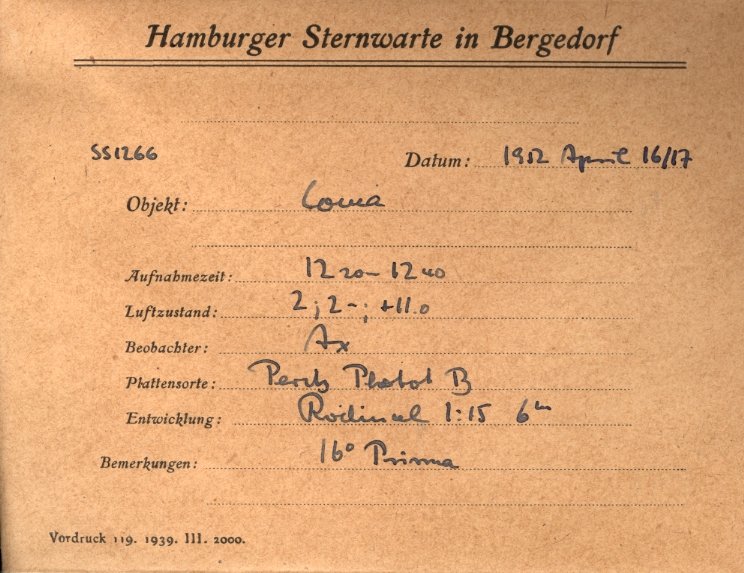 Hamburger Sternwarte in Bergedorf
SS1266
Datum: 1952 April 16/17
Objekt: Coma
Aufnahmezeit: 12 20 – 12 40
Luftzustand: 2; 2-; +11.0
Beobachter: Ax
Plattensorte: Perutz B
Entwicklung: Rodinal 1:15 6ᵐ
Bemerkungen: 16° Prisma
Vordruck 119. 1939. III. 2000.